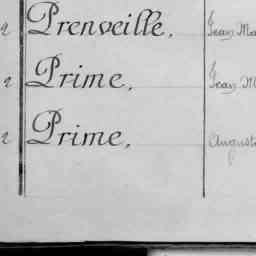 2 Prenveille, Jean Ma
2 Prime, Jean M
2 Prime, Auguste